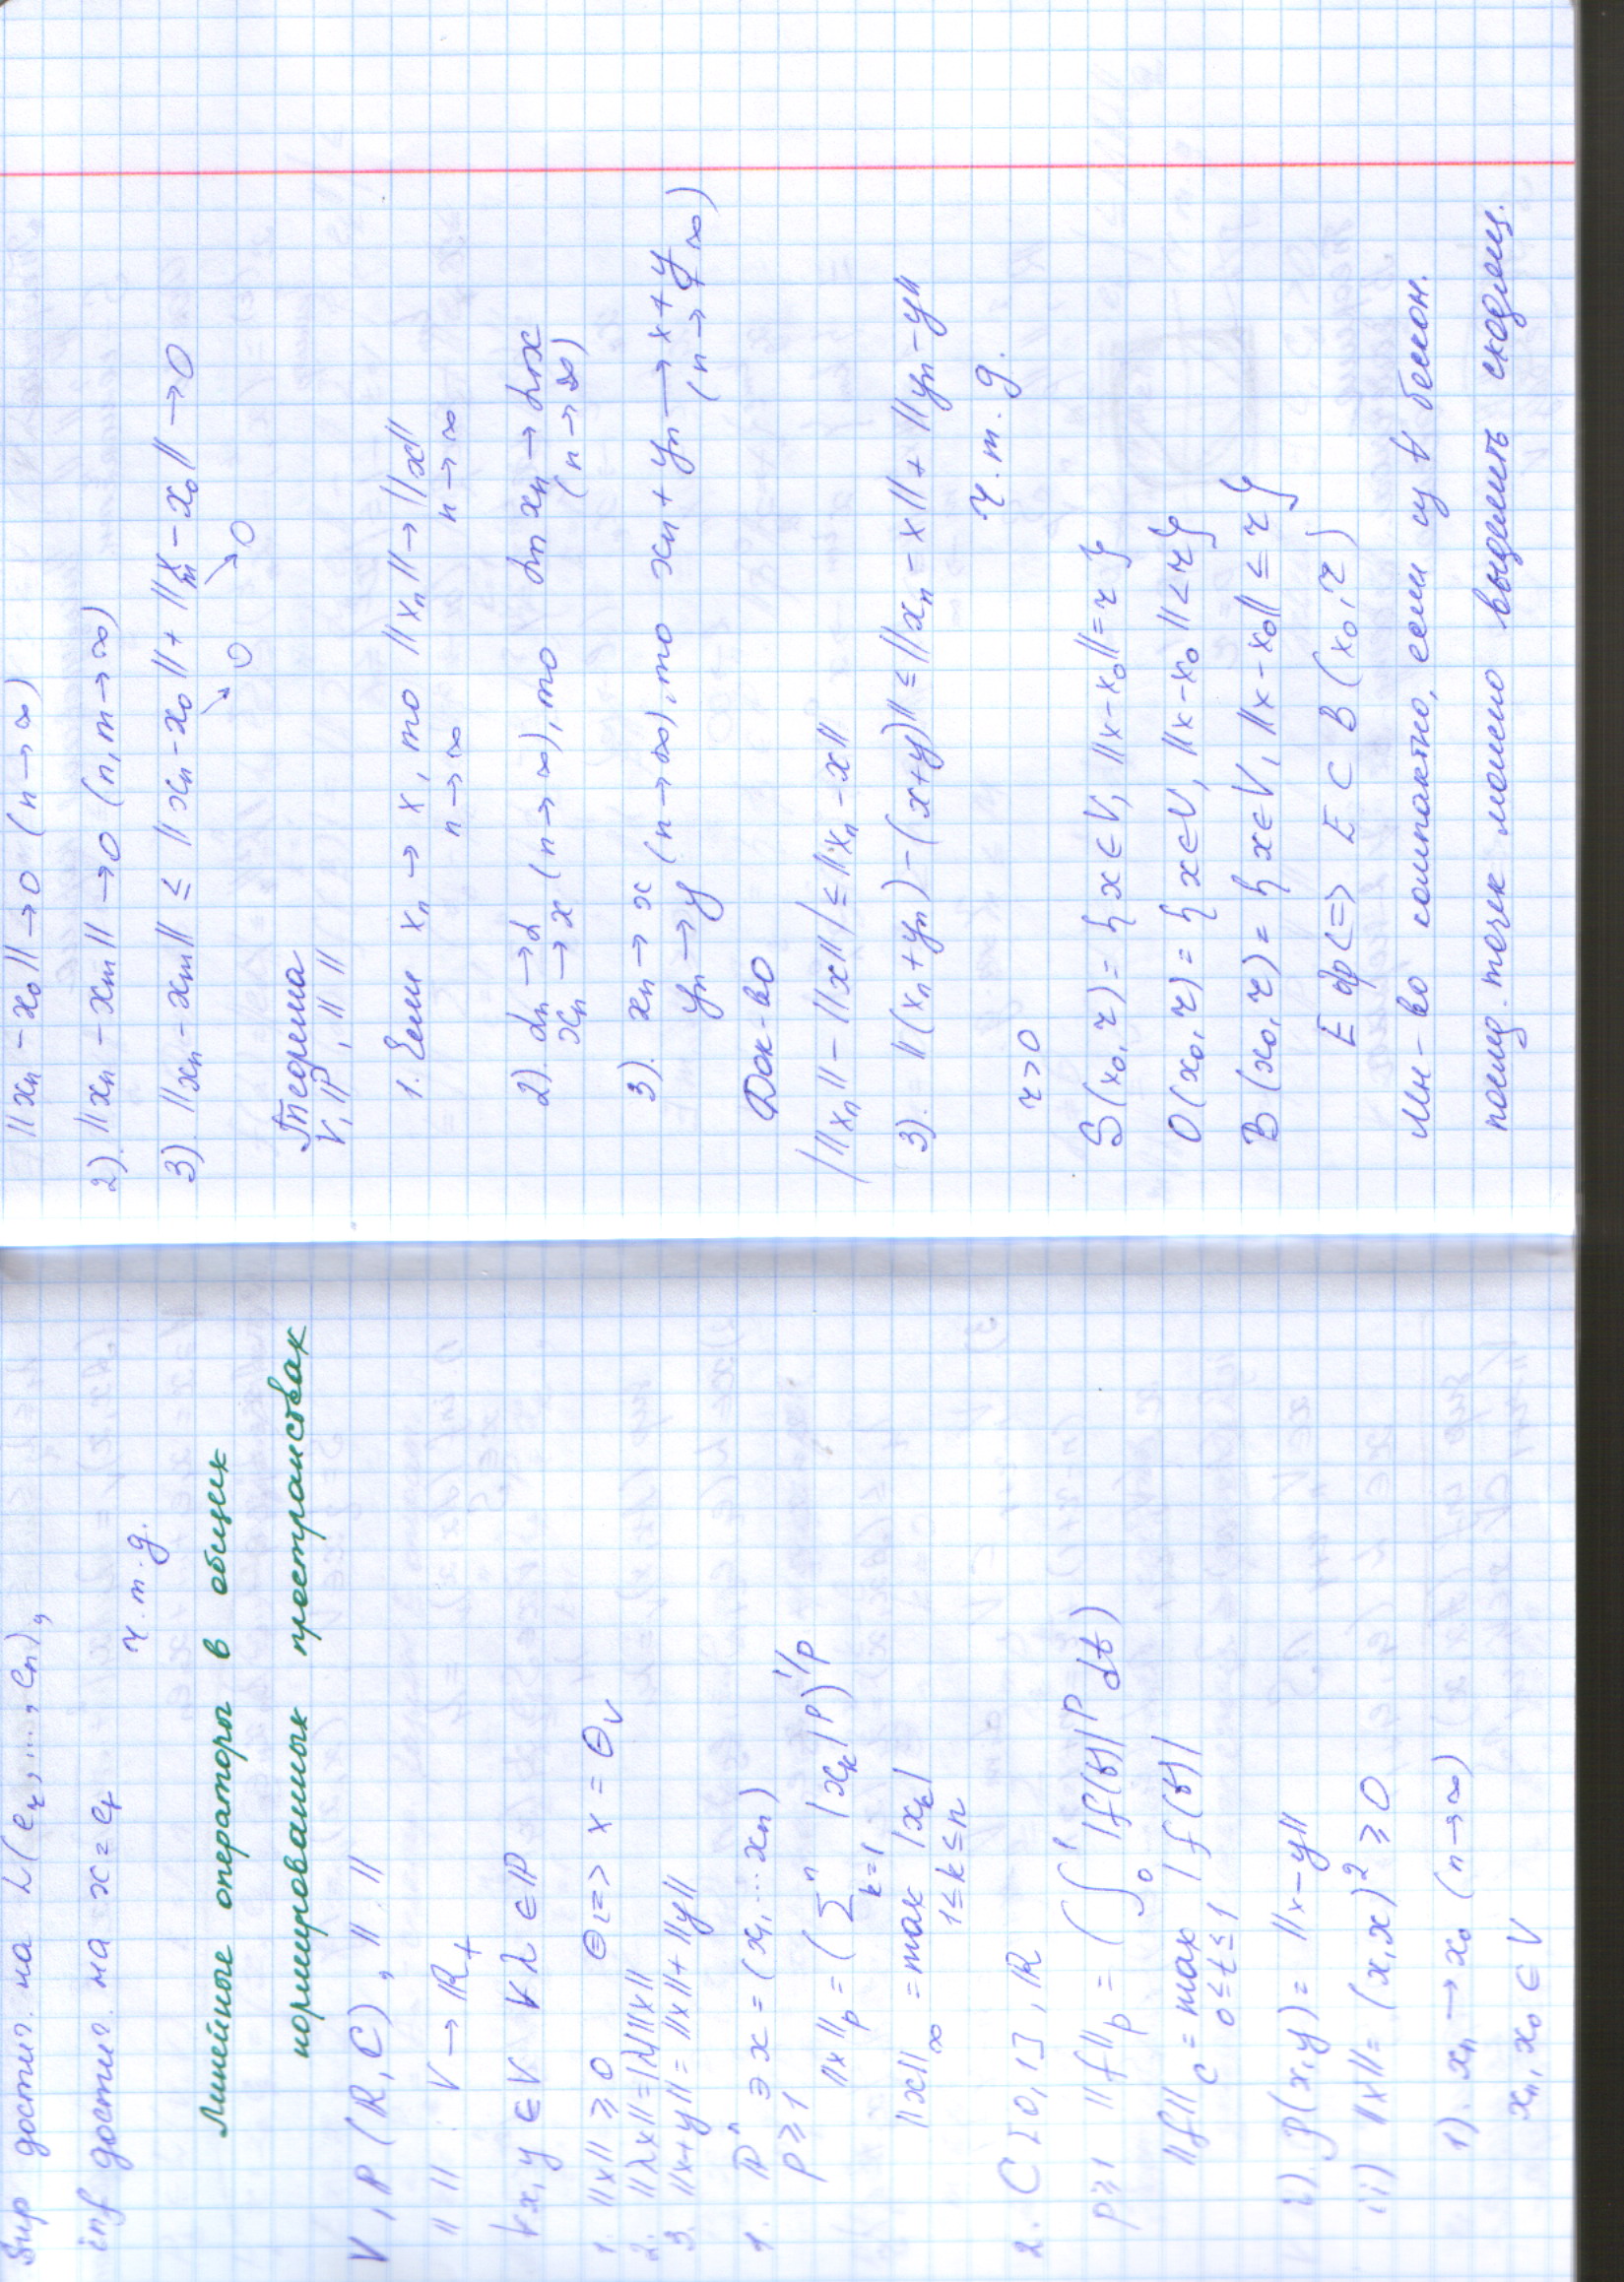 Sup достиг. на L(e₁,...,eₙ),
inf достиг. на x = e₁
ч.т.д.
Линейные операторы в общих
нормированных пространствах
V, P (R, C), ‖·‖
‖ ‖ : V → R₊
∀x, y ∈ V ∀ λ ∈ P
1. ‖x‖ ≥ 0 0 <=> x = θ_V
2. ‖λx‖ = |λ|‖x‖
3. ‖x+y‖ = ‖x‖ + ‖y‖
1. Pⁿ ∋ x = (x₁,...xₙ)
p ≥ 1
‖x‖_p = (∑_{k=1}^n |x_k|^p)^{1/p}
‖x‖_∞ = max |x_k|
1≤k≤n
2. C [0,1], R
p≥1 ‖f‖_p = (∫_0^1 |f(t)|^p dt)
‖f‖_c = max |f(t)|
0≤t≤1
i) ρ(x,y) = ‖x−y‖
ii) ‖x‖ = (x,x)² ≥ 0
1). xₙ → x₀ (n→∞)
xₙ, x₀ ∈ V
‖xₙ − x₀‖ → 0 (n → ∞)
2). ‖xₙ − xₘ‖ → 0 (n, m → ∞)
3). ‖xₙ − xₘ‖ ≤ ‖xₙ − x₀‖ + ‖xₘ − x₀‖ → 0
↘0 ↘0
Теорема
V, P, ‖ ‖
1. Если xₙ → x, то ‖xₙ‖ → ‖x‖
n→∞ n→∞
2). αₙ → α (n → ∞), то αₙ xₙ → αx
xₙ → x (n → ∞)
3). xₙ → x (n → ∞), то xₙ + yₙ → x + y
yₙ → y (n → ∞)
Док-во
|‖xₙ‖ − ‖x‖| ≤ ‖xₙ − x‖
3). ‖(xₙ + yₙ) − (x+y)‖ ≤ ‖xₙ − x‖ + ‖yₙ − y‖
ч.т.д.
r>0
S(x₀, r) = {x ∈ V, ‖x−x₀‖ = r}
O(x₀, r) = {x ∈ V, ‖x−x₀‖ < r}
B(x₀, r) = {x ∈ V, ‖x−x₀‖ ≤ r}
E огр <=> E ⊂ B(x₀, r)
Мн-во компактно, если из ∀ бескон.
послед. точек можно выделить сходящ.